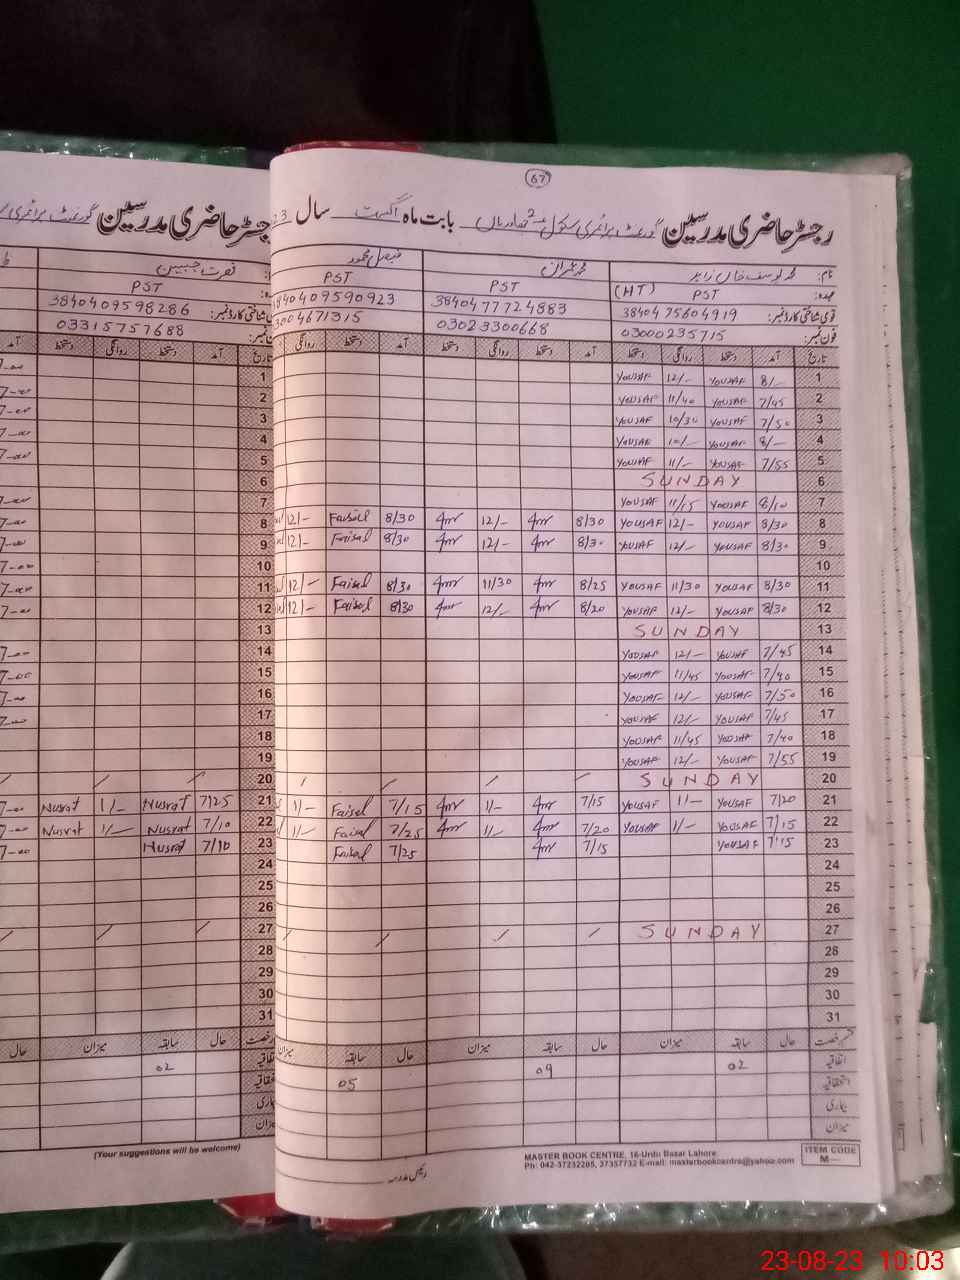 67
رجسٹر حاضری مدرسین گورنمنٹ پرائمری سکول بابت ماہ اگست سال 23
رجسٹر حاضری مدرسین گورنمنٹ پرائمری
نام: محمد یوسف خان محمد عمران فیصل محمود نصرت جبین
عہدہ: PST (HT) PST PST PST
قومی شناختی کارڈ نمبر: 38404 75604919 38404 77724883 3840409590923 3840409598286
فون نمبر: 03000235715 03023300668 3004671315 03315757688
تاریخ آمد دستخط روانگی دستخط آمد دستخط روانگی دستخط آمد دستخط روانگی آمد دستخط روانگی دستخط آمد
1 8/- YOUSAF 12/- YOUSAF 7-00
2 7/45 YOUSAF 11/40 YOUSAF 7-00
3 7/50 YOUSAF 10/30 YOUSAF 7-00
4 8/- YOUSAF 10/- YOUSAF 7-00
5 7/55 YOUSAF 11/- YOUSAF 7-00
6 SUNDAY
7 8/10 YOUSAF 11/15 YOUSAF 7-00
8 8/30 YOUSAF 12/- YOUSAF 8/30 12/- 8/30 Faisal 12/- 7-00
9 8/30 YOUSAF 12/- YOUSAF 8/30 12/- 8/30 Faisal 12/- 7-00
10 7-00
11 8/30 YOUSAF 11/30 YOUSAF 8/25 11/30 8/30 Faisal 12/- 7-00
12 8/30 YOUSAF 12/- YOUSAF 8/20 12/- 8/30 Faisal 12/- 7-00
13 SUNDAY
14 7/45 YOUSAF 12/- YOUSAF 7-00
15 7/40 YOUSAF 11/45 YOUSAF 7-00
16 7/50 YOUSAF 12/- YOUSAF 7-00
17 7/45 YOUSAF 12/- YOUSAF 7-00
18 7/40 YOUSAF 11/45 YOUSAF
19 7/55 YOUSAF 12/- YOUSAF
20 SUNDAY
21 7/20 YOUSAF 1/- YOUSAF 7/15 1/- 7/15 Faisal 1/- 7/25 Nusrat 1/- Nusrat 7-00
22 7/15 YOUSAF 1/- YOUSAF 7/20 1/- 7/25 Faisal 1/- 7/10 Nusrat 1/- Nusrat 7-00
23 7/15 YOUSAF 7/15 7/25 Faisal 7/10 Nusrat 7-00
24
25
26
27 SUNDAY
28
29
30
31
قسم رخصت حال سابقہ میزان حال سابقہ میزان حال سابقہ میزان رخصت حال سابقہ میزان حال
اتفاقیہ 02 09 05 02
استحقاقیہ
بیماری
میزان
رئیس مدرسہ
(Your suggestions will be welcome)
MASTER BOOK CENTRE, 16-Urdu Bazar Lahore.
Ph: 042-37232285, 37357732 E-mail: masterbookcentre@yahoo.com
ITEM CODE
M—
23-08-23 10:03